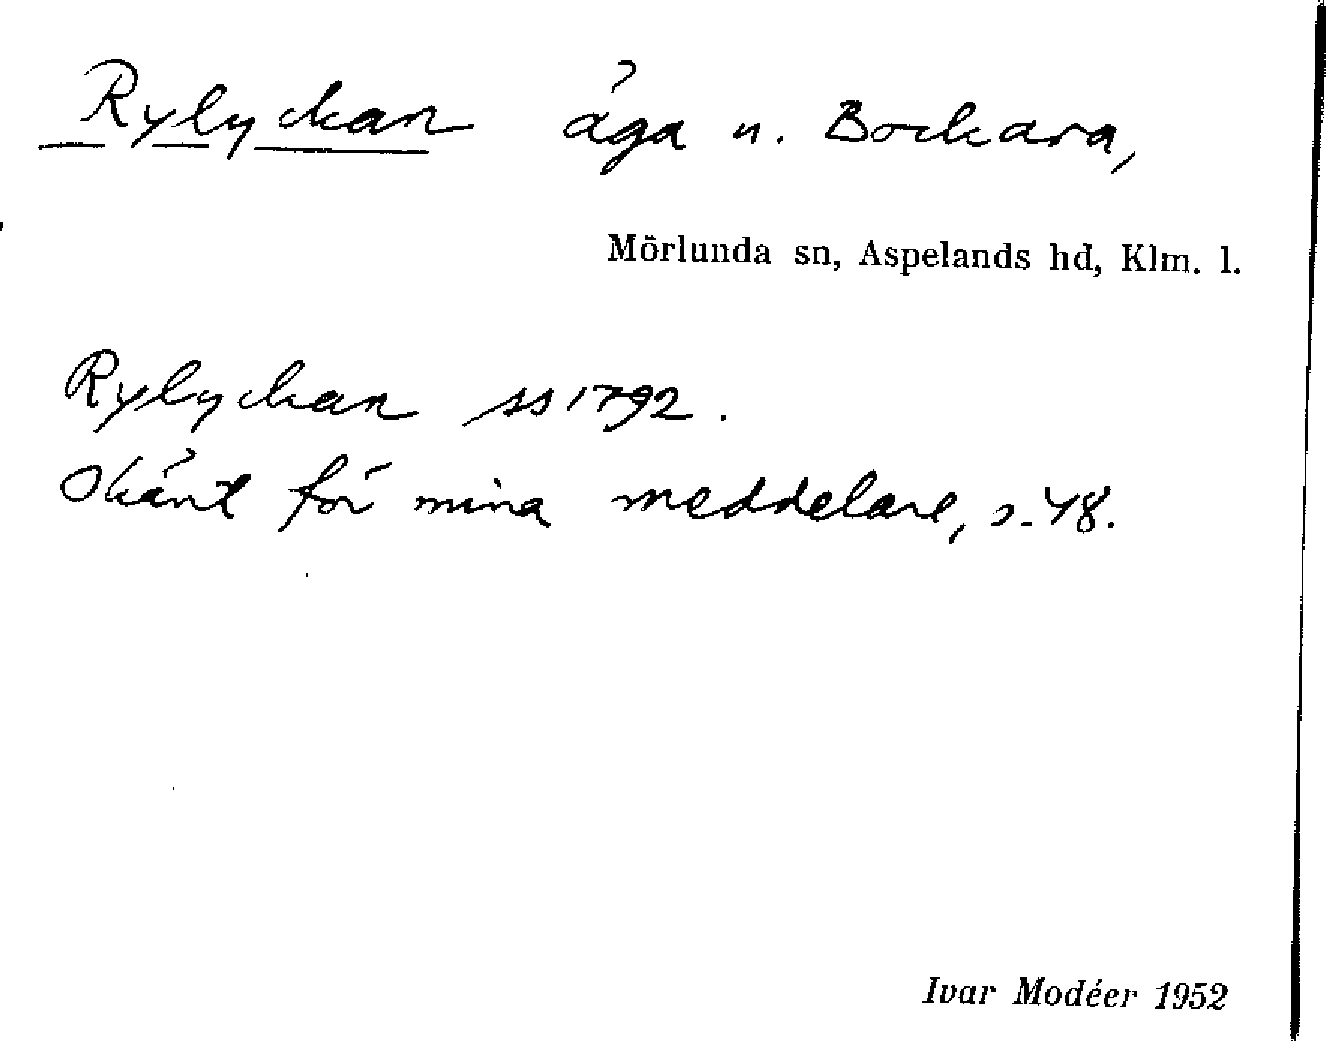 Rylyckan åga u. Bockara,
Mörlunda sn, Aspelands hd, Klm. l.
Rylyckan ss 1792.
Okänt för mina meddelare, s. 48.
Ivar Modéer 1952